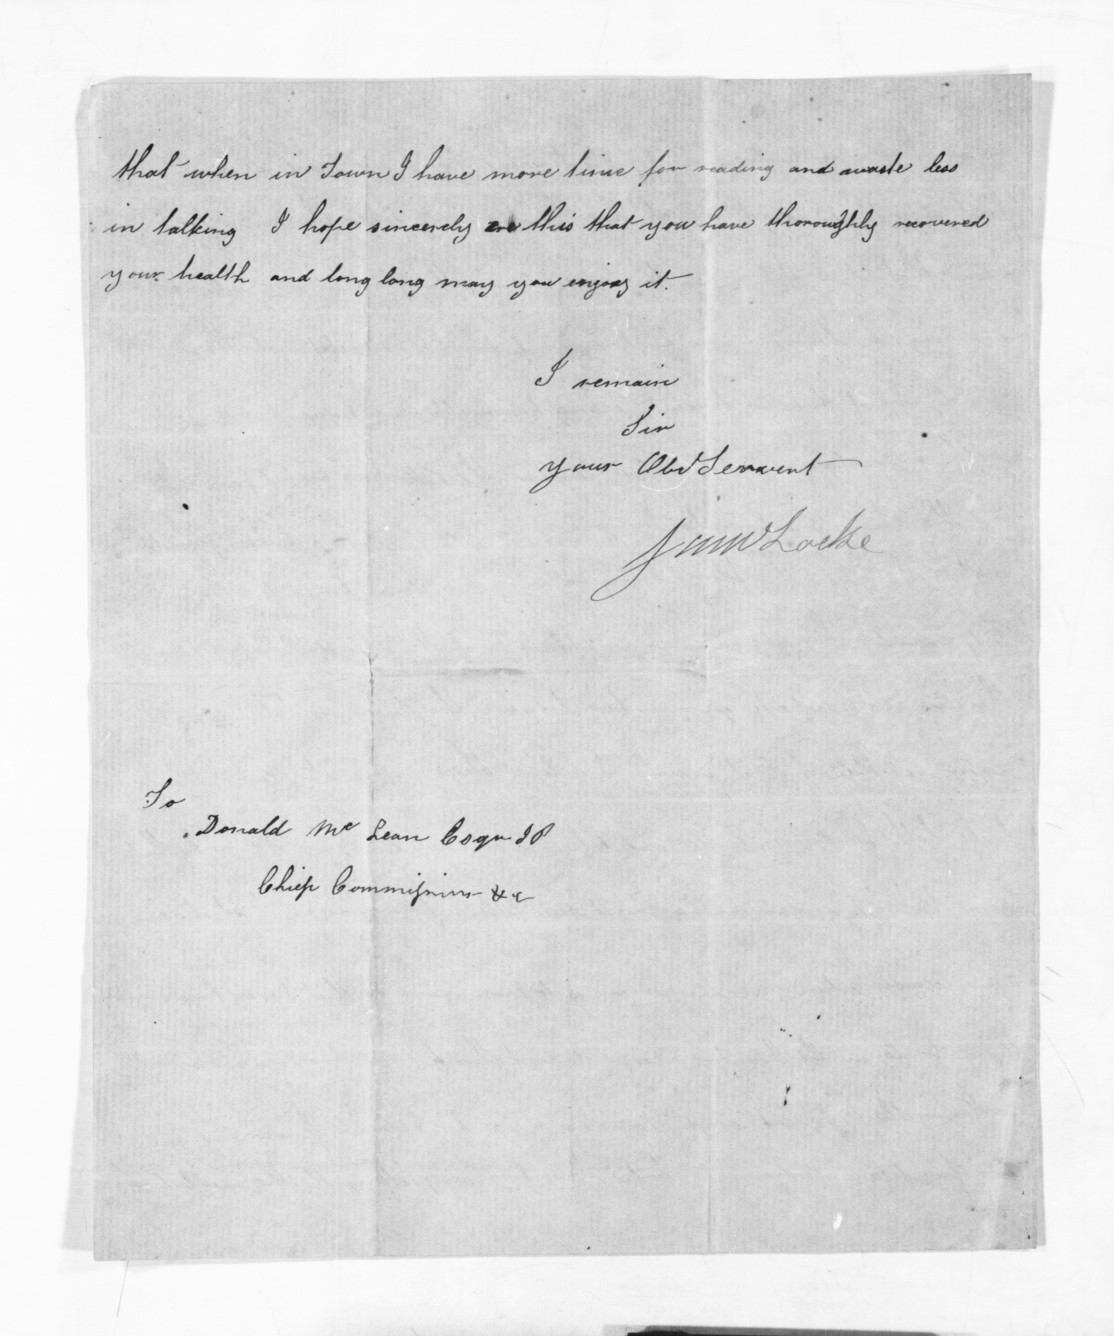 that when in Town I have more time for reading and waste less
in talking I hope sincerely ere this that you have thoroughly recovered
your health and long long may you enjoy it.
I remain
Sir
your Obd Servent
Locke
To
Donald Mc Lean Esqr JP
Chief Commissioner &c